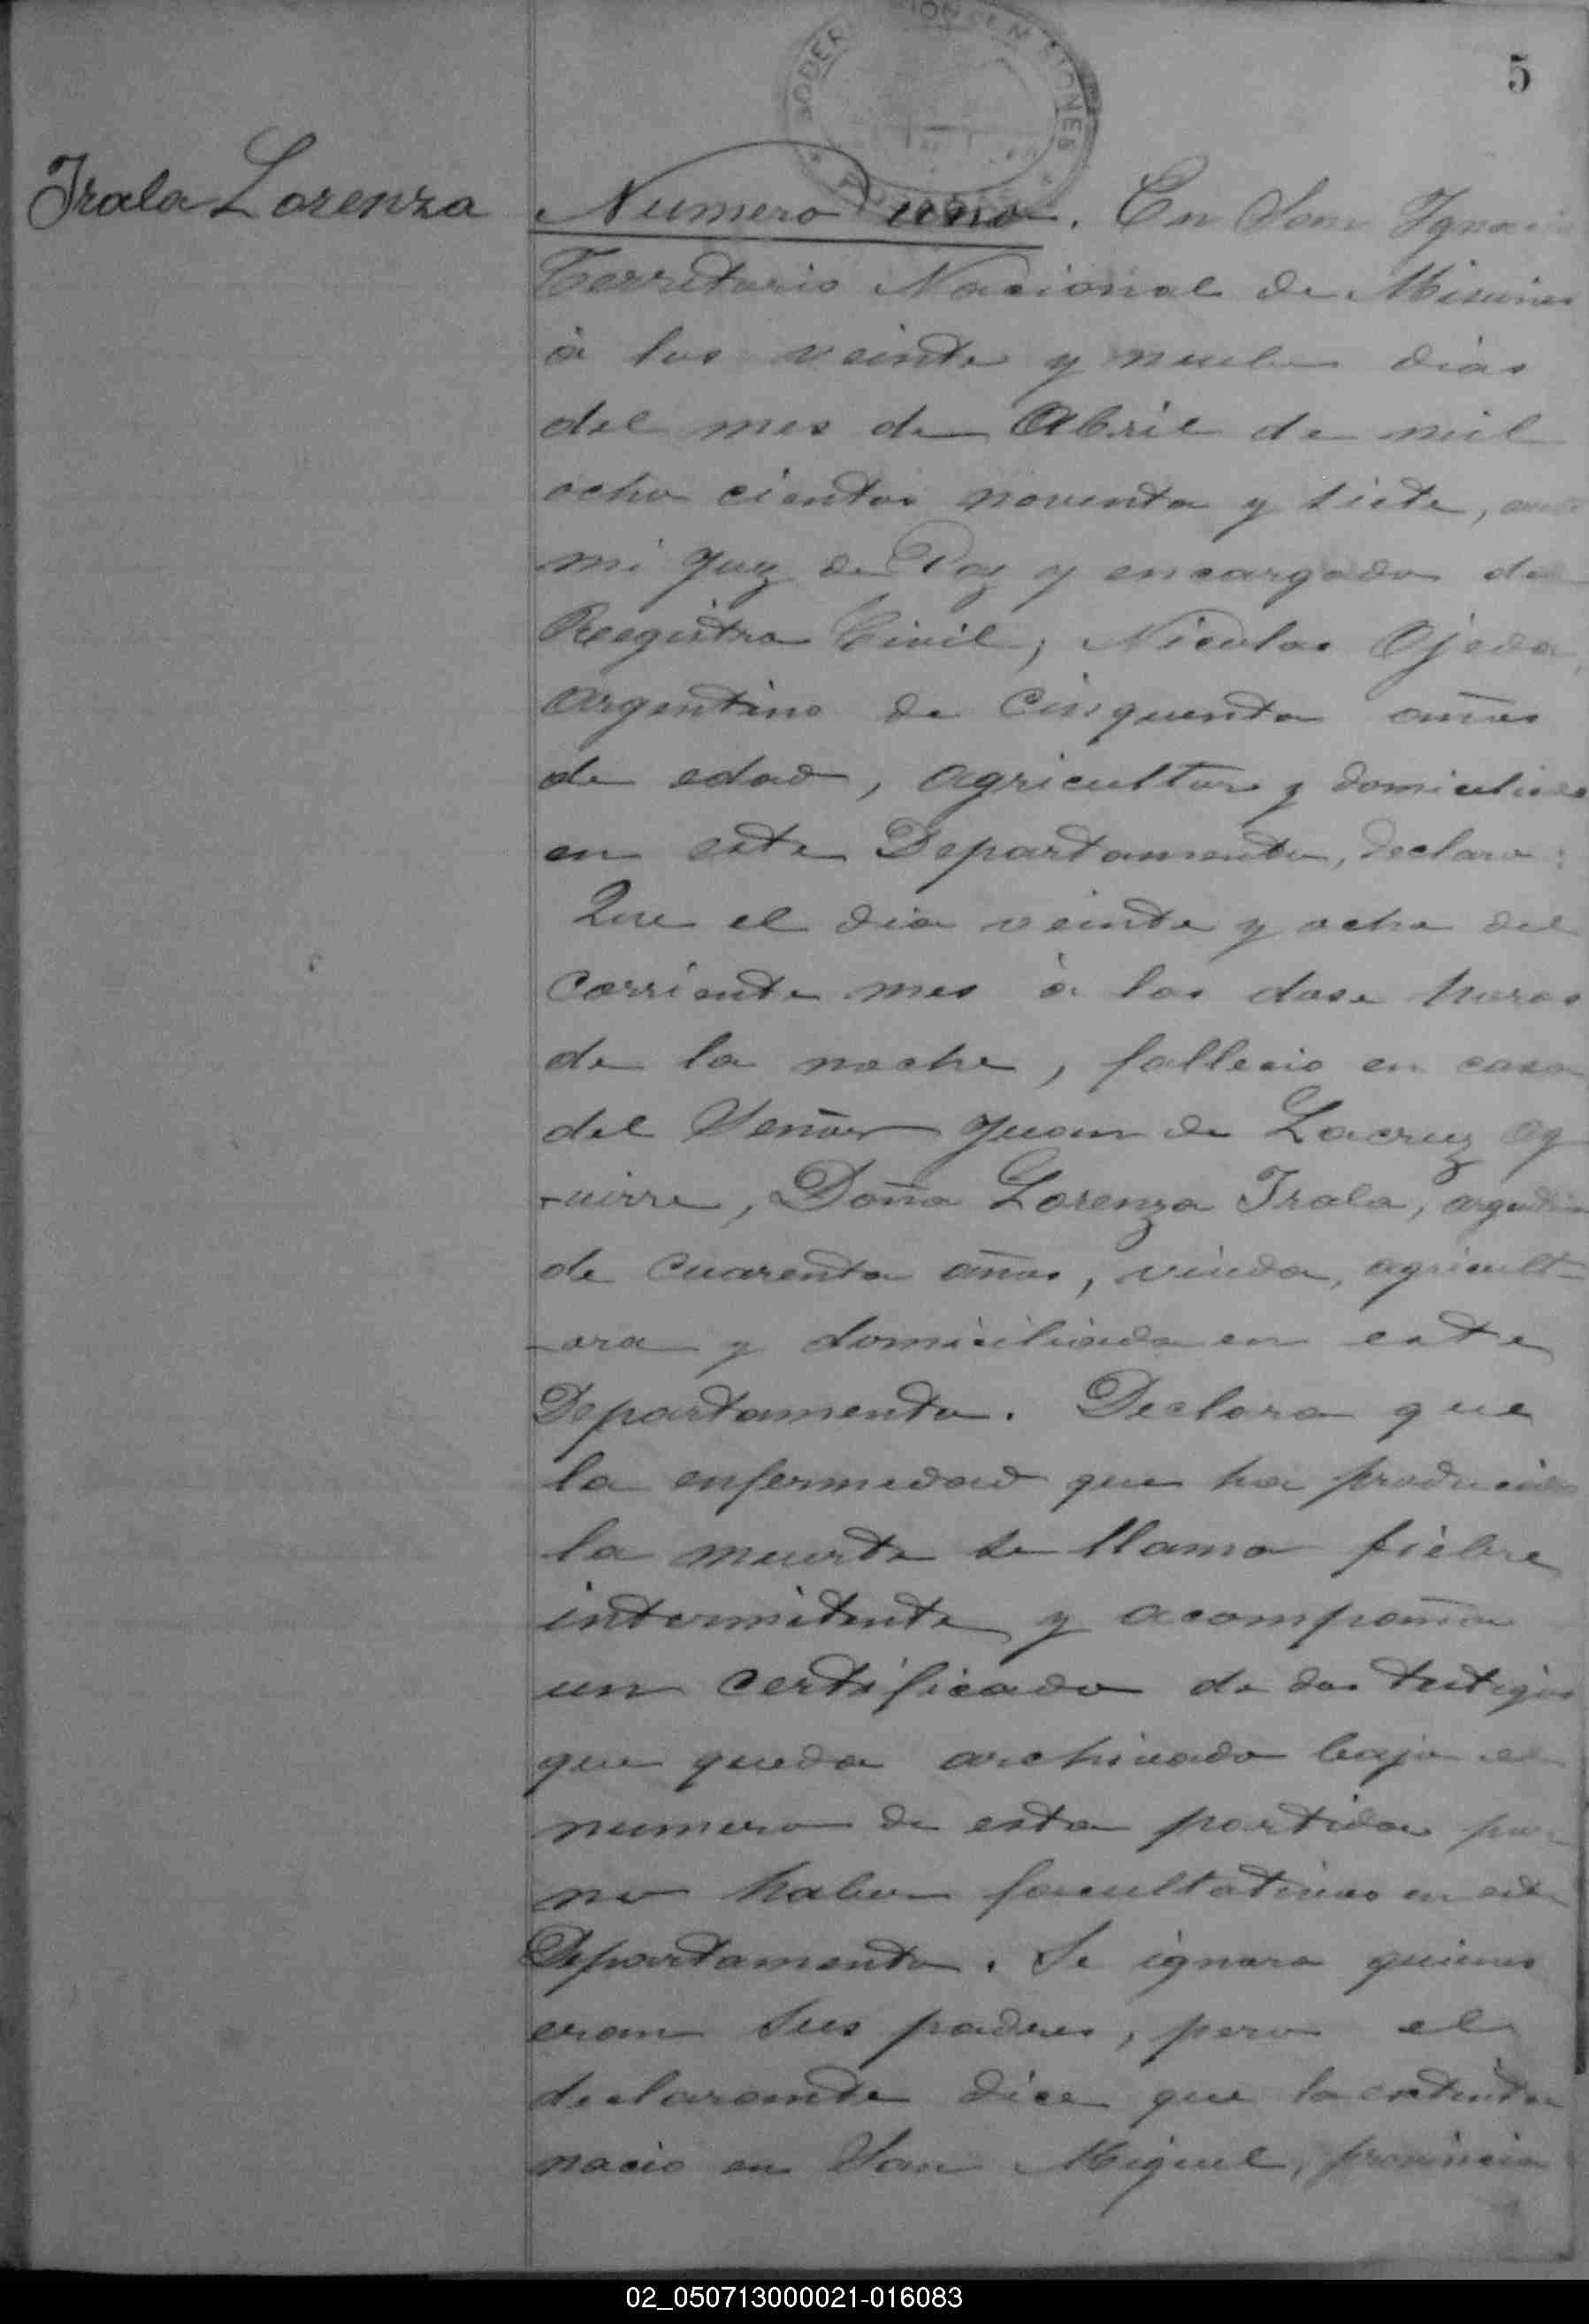 5
Irala Lorenza
Numero uno. En San Ignacio
Territorio Nacional de Misiones
á los veinte y nueve dias
del mes de Abril de mil
ocho cientos noventa y siete, ante
mi Juez de Paz y encargado del
Reegistro Civil, Nicolas Ojeda,
Argentino de Cinquenta años
de edad, agricultor y domiciliado
en este Departamento, declaro:
Que el dia veinte y ocho del
corriente mes á las dose horas
de la noche, fallecio en casa
del Señor Juan de Lacruz Ag
-uirre, Doña Lorenza Irala, argentina
de cuarenta años, viuda, agricult-
-ora y domiciliada en este
Departamento. Declara que
la enfermedad que ha producido
la muerte se llama fiebre
intermitente y acompaña
un certificado de dos testigos
que queda archivado bajo el
numero de esta partida por
no haber facultativos en este
Departamento. Se ignora quienes
eran sus padres, pero el
declarante dice que la extinta
nacio en San Miguel, provincia
02_050713000021-016083